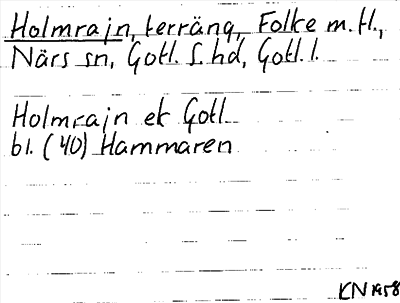 Holmrajn, terräng, Folke m.fl.,
Närs sn, Gotl. S. hd, Gotl. l.
Holmrajn ek Gotl.
bl. (40) Hammaren
KN 1958